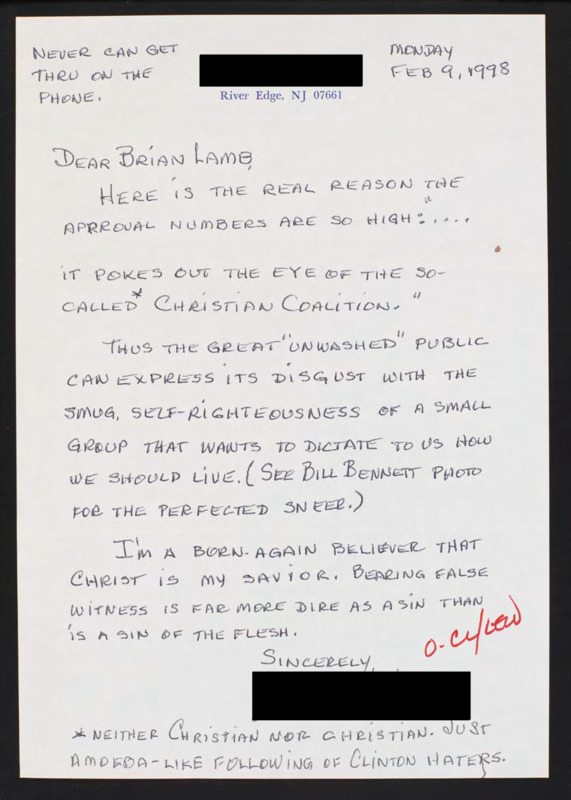 NEVER CAN GET
THRU ON THE
PHONE.
MONDAY
FEB 9, 1998
River Edge, NJ 07661
DEAR BRIAN LAMB,
HERE IS THE REAL REASON THE
APRROVAL NUMBERS ARE SO HIGH: "....
IT POKES OUT THE EYE OF THE SO-
CALLED* CHRISTIAN COALITION."
THUS THE GREAT "UNWASHED" PUBLIC
CAN EXPRESS ITS DISGUST WITH THE
SMUG, SELF-RIGHTEOUSNESS OF A SMALL
GROUP THAT WANTS TO DICTATE TO US HOW
WE SHOULD LIVE. (SEE BILL BENNETT PHOTO
FOR THE PERFECTED SNEER.)
I'M A BORN-AGAIN BELIEVER THAT
CHRIST IS MY SAVIOR. BEARING FALSE
WITNESS IS FAR MORE DIRE AS A SIN THAN
IS A SIN OF THE FLESH.
SINCERELY,
* NEITHER CHRISTIAN NOR CHRISTIAN. JUST
AMOEBA-LIKE FOLLOWING OF CLINTON HATERS.